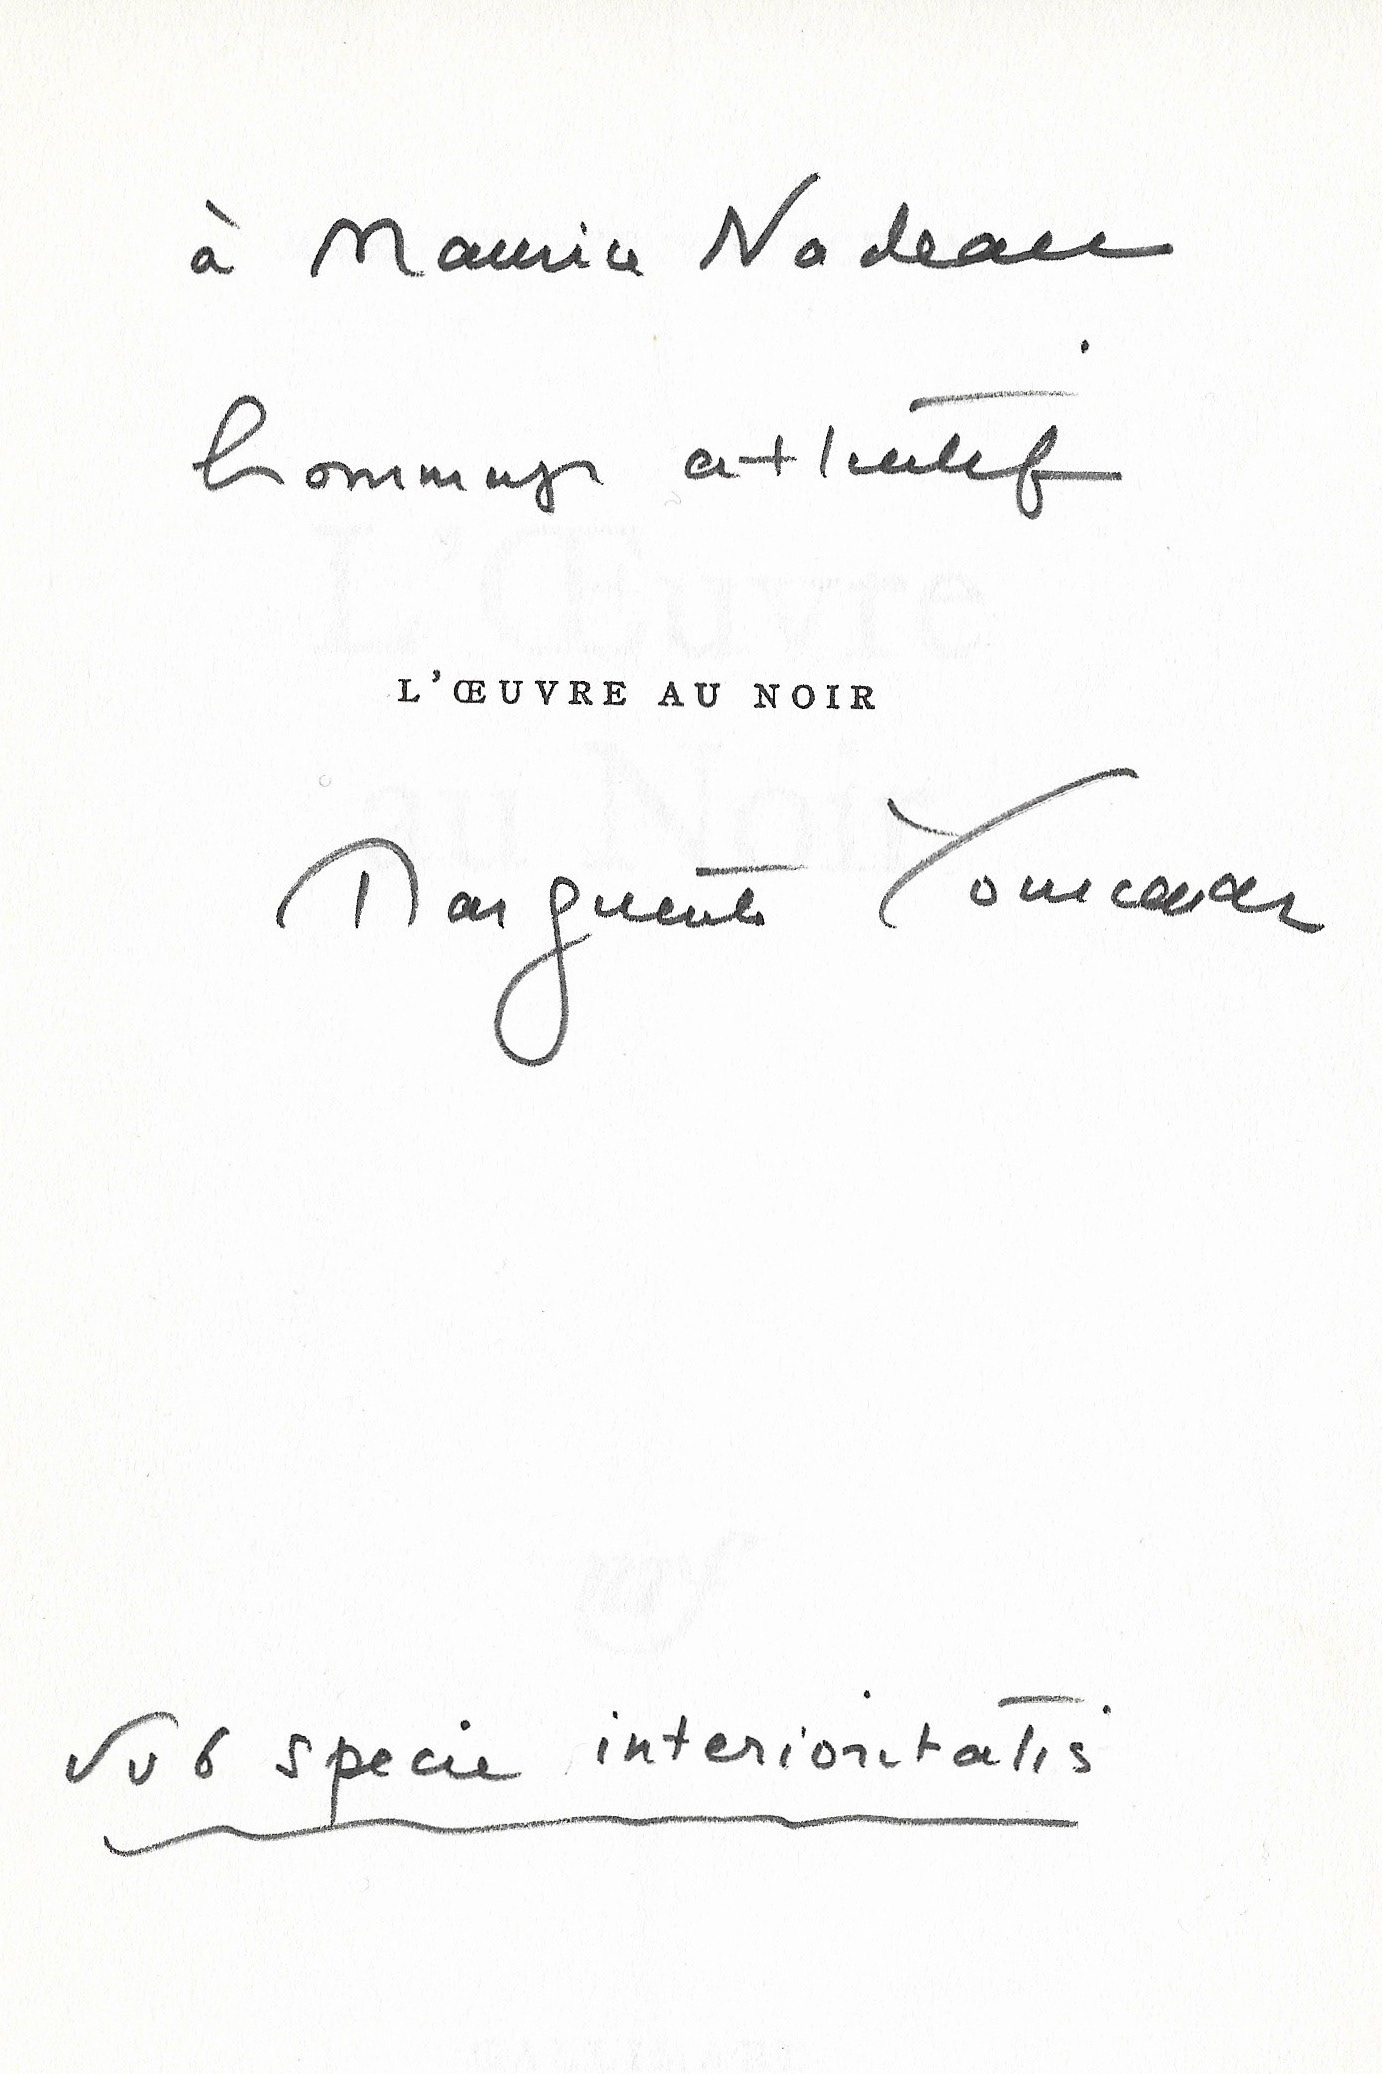 à Maurice Nadeau
hommage attentif
L'ŒUVRE AU NOIR
Marguerite Yourcenar
sub specie interioritatis